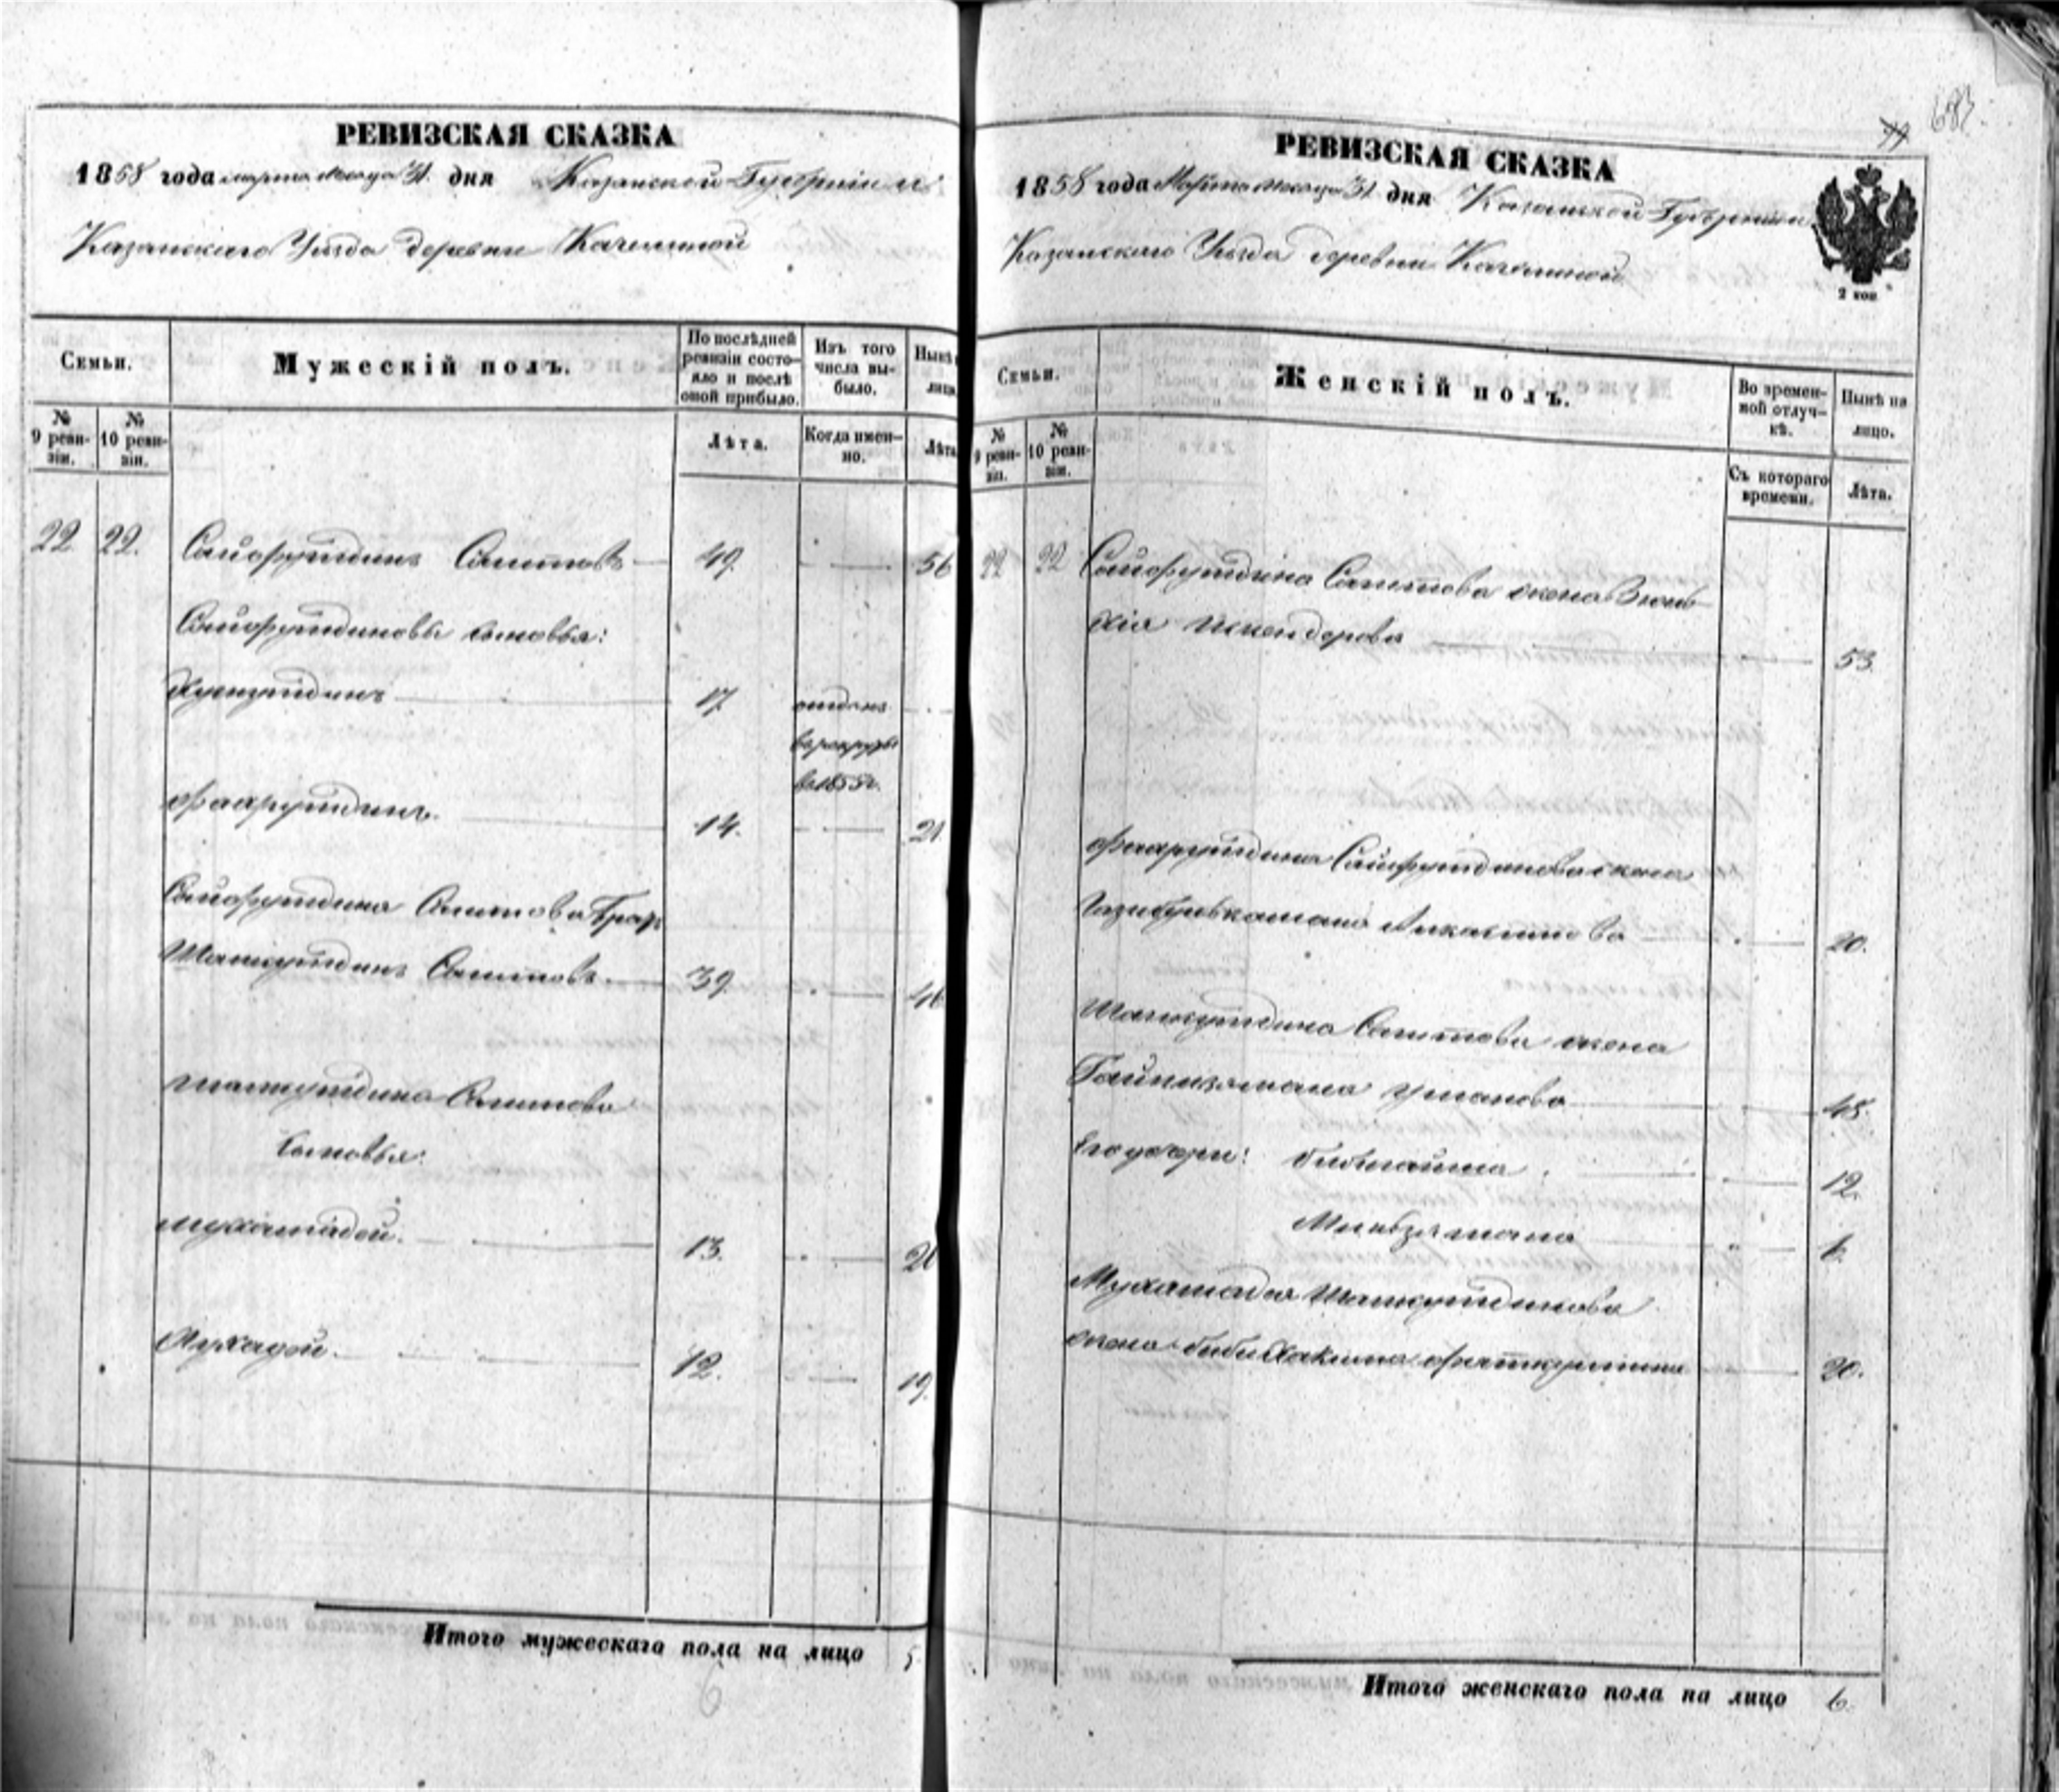 РЕВИЗСКАЯ СКАЗКА
1858 года марта месяца 31 дня Казанской Губернии
Казанскаго Уѣзда деревни Качелиной
Семьи.
Мужескій полъ.
По послѣдней ревизіи состояло и послѣ оной прибыло.
Изъ того числа выбыло.
Нынѣ
лица
№ 9 ревизіи.
№ 10 ревизіи.
Лѣта.
Когда именно.
Лѣта
22 22. Сайфутдинъ Саитовъ 49 56
Сайфутдиновы сыновья:
17 отданъ
в рекруты
в 1855 г.
14. 21.
Сайфутдина Саитова брат
Шамсутдинъ Саитовъ 39 46
Шамсутдина Саитова
сыновья:
Мухамадей. 13. 20
12. 19.
Итого мужескаго пола на лицо 5
6
683.
РЕВИЗСКАЯ СКАЗКА
1858 года Марта месяца 31 дня Казанской Губернии
Казанскаго Уѣзда деревни Качелиной
2 коп
Семьи.
Женскій полъ.
Во временной отлучкѣ.
Нынѣ на лицо.
№ 9 ревизіи.
№ 10 ревизіи.
Съ котораго времени.
Лѣта.
22 22 Сайфутдина Саитова жена
53.
Сайфутдинова жена
20.
Шамсутдина Саитова жена
48.
Его дочери: Бибигайша 12.
6.
Мухамадея Шамсутдинова
жена Бибихакима 20.
Итого женскаго пола на лицо 6.